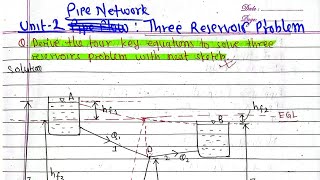 Date :
Page :
Pipe Network
Unit-2 Pipe Flow : Three Reservoir Problem
Q. Derive the four key equations to solve three
reservoirs problem with neat sketch.
Solution
A
hf1
B
hf2
EGL
Q1
1
D
2
Q2
hf3